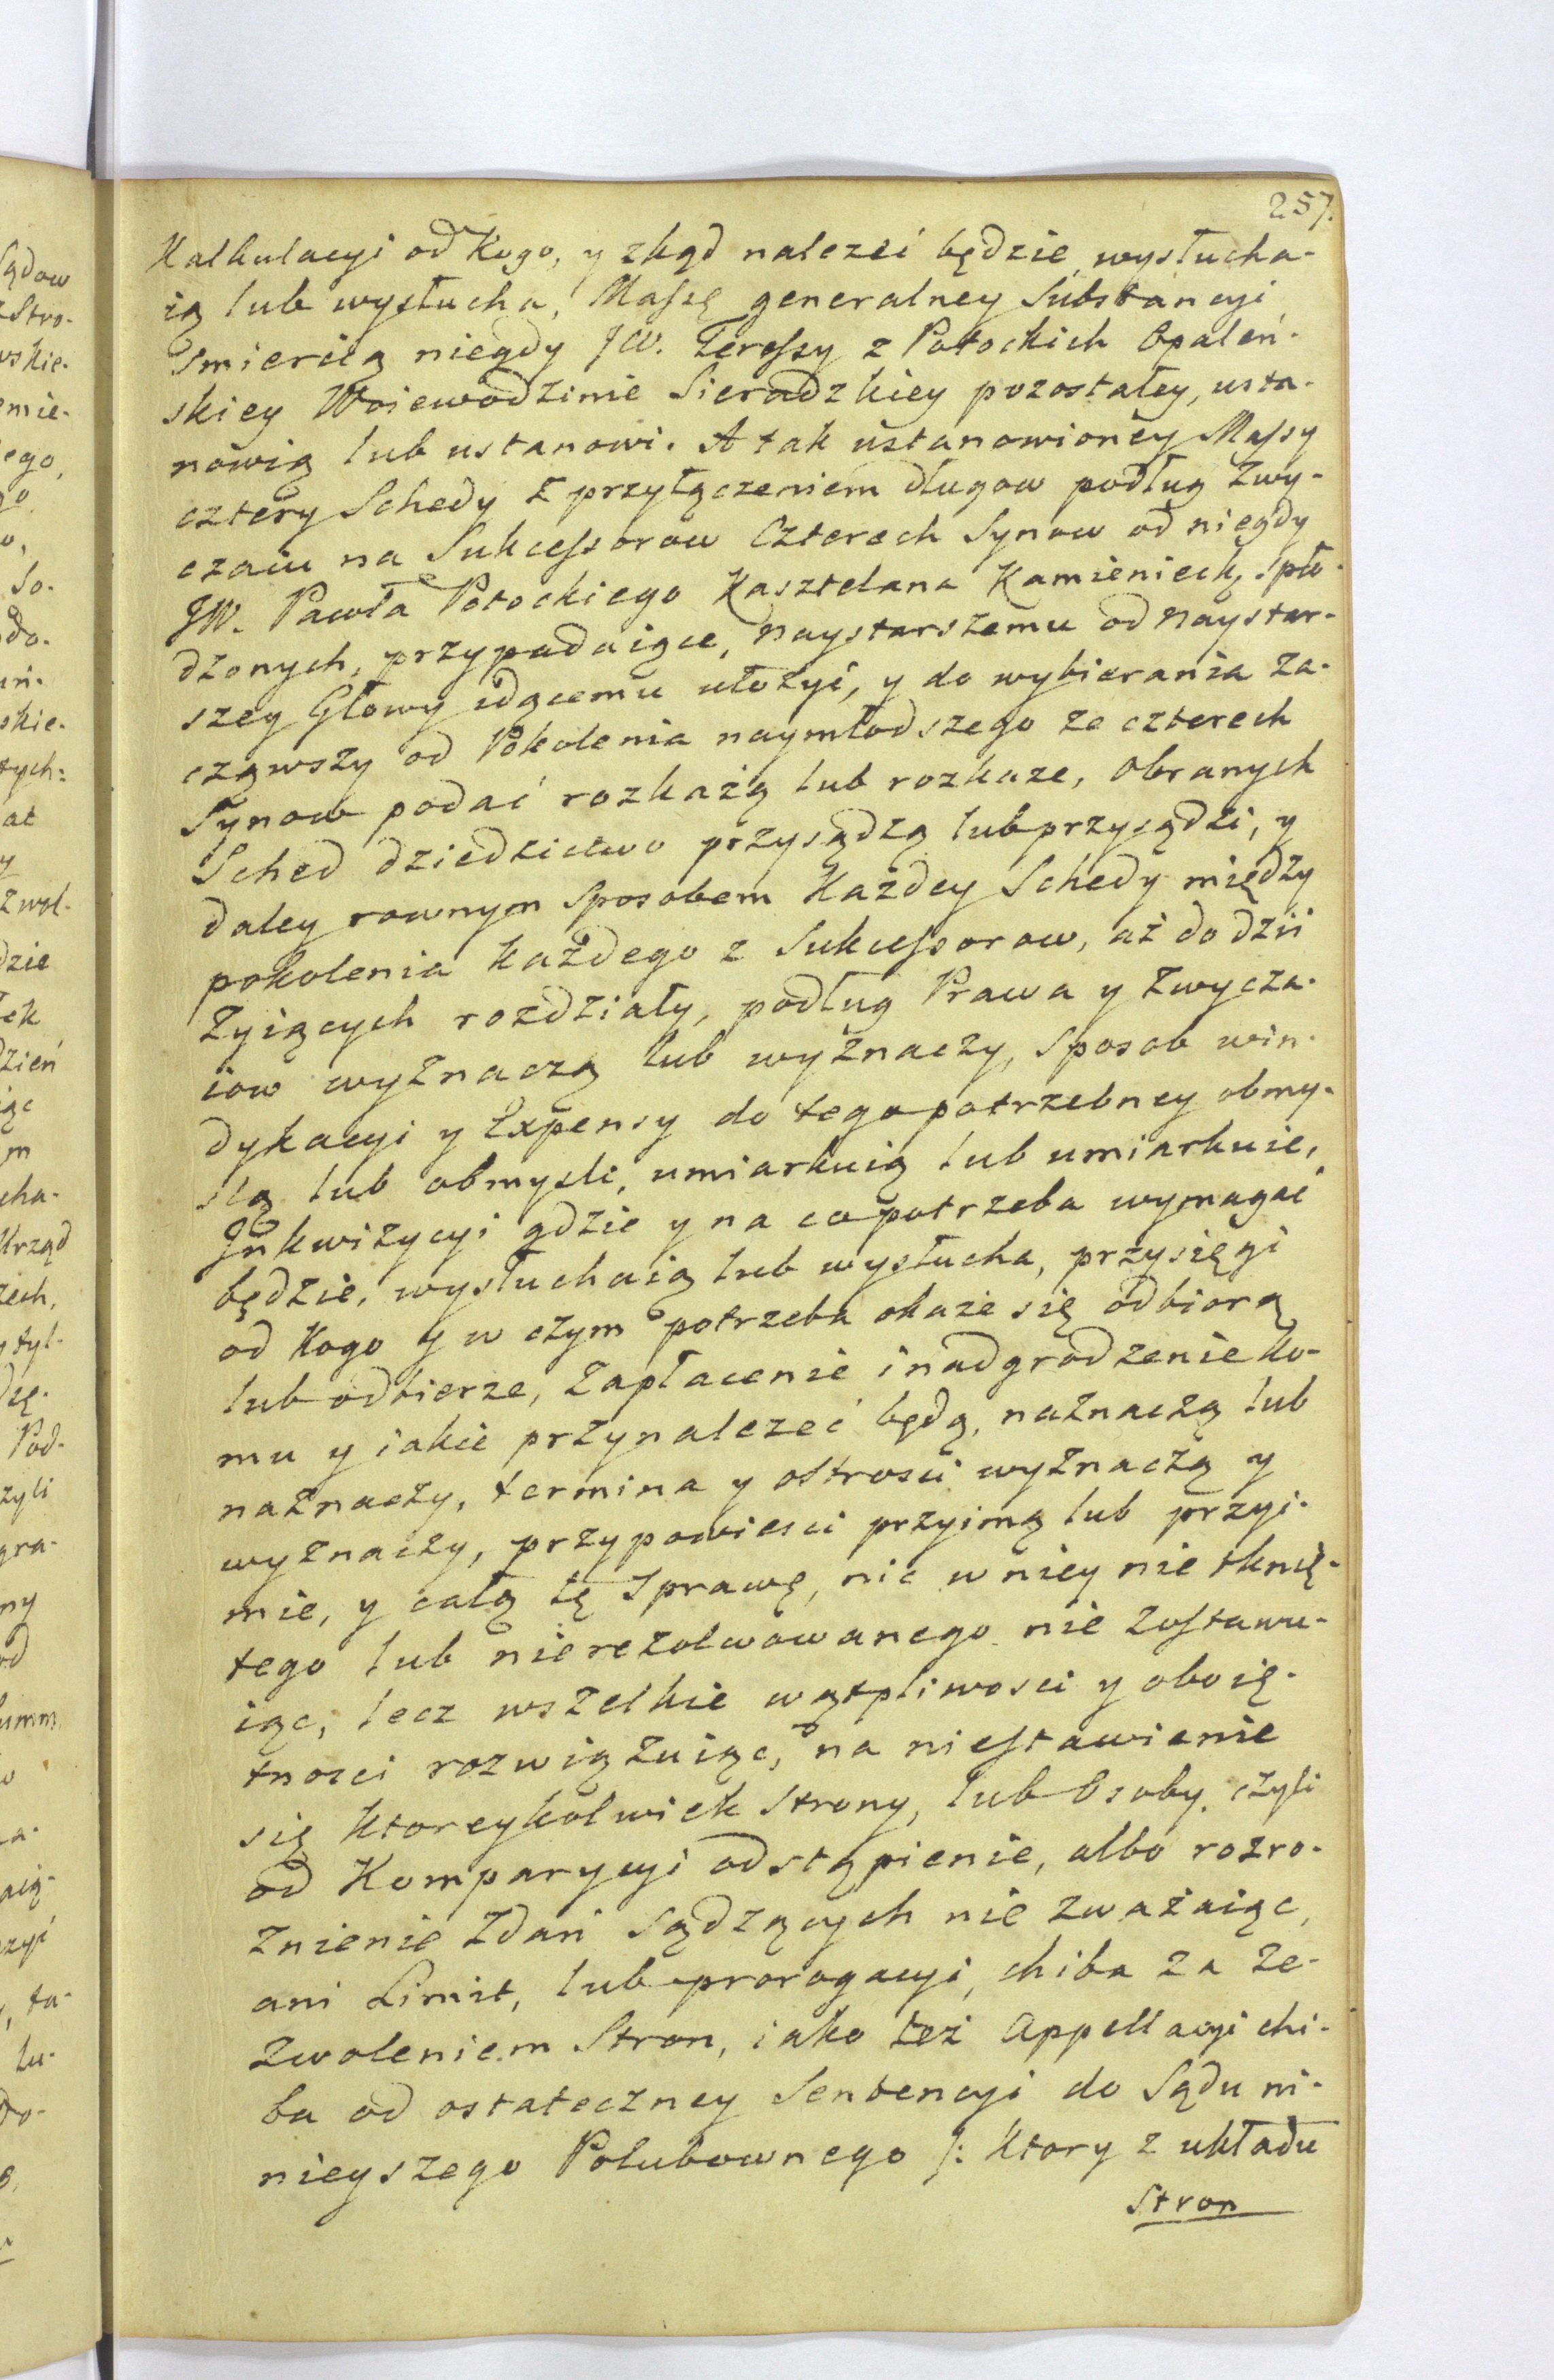 257.
Kalkulacyi od Kogo, y zkąd nalezeć będzie, wysłucha-
ią lub wysłucha, Massę generalney Substancyi
Smiercią niegdy JW. Teressy z Potockich Opaleń-
skiey Woiewodzinie Sieradzkiey pozostałey, usta-
nowią lub ustanowi. A tak ustanowioney Massy
cztery Schedy z przyłączeniem długow podług Zwy-
czaiu na Sukcessorow Czterech Synow od niegdy
JW. Pawła Potockiego Kasztelana Kamienieck. spło-
dzonych, przypadaiące, naystarszemu od naystar-
szey Głowy idącemu ułożyć, y do wybierania za-
cząwszy od Pokolenia naymłodszego ze czterech
Synow podać rozkażą lub rozkaze, Obranych
Sched dziedzictwo przysądzą lub przysądzi, y
daley rownym sposobem Każdey Schedy między
pokolenia każdego z Sukcessorow, aż do dziś
Zyiących rozdziały, podług Prawa y Zwycza-
iow wyznaczą lub wyznaczy, sposob win-
dykacyi y Expensy do tego potrzebney obmy-
slą lub obmysli, umiarkuią lub umiarkuie,
Inkwizycyi gdzie y na co potrzeba wymagać
będzie, wysłuchaią lub wysłucha, przysięgi
od Kogo y w czym potrzeba okaże się odbiorą
lub odbierze, Zapłacenie i nadgrodzenie ko-
mu y iakie przynalezeć będą, naznaczą lub
naznaczy, termina y ostrosci wyznaczą y
wyznaczy, przypowiesci przyimą lub przyi-
mie, y całą tę Sprawę, nic w niey nie tknię-
tego lub nierezolwowanego nie Zostawu-
iąc, lecz wszelkie wątpliwosci y oboię-
tnosci rozwiązuiąc, na niestawienie
się ktoreykolwiek strony, lub Osoby, czyli
od Komparycyi odstąpienie, albo rozro-
żnienie Zdań Sądzących nie zważaiąc,
ani Limit, lub prorogacyi, chiba za ze-
zwoleniem Stron, iako też Appellacyi chi-
ba od ostateczney Sentencyi do Sądu ni-
nieyszego Polubownego /: Ktory z układu
Stron